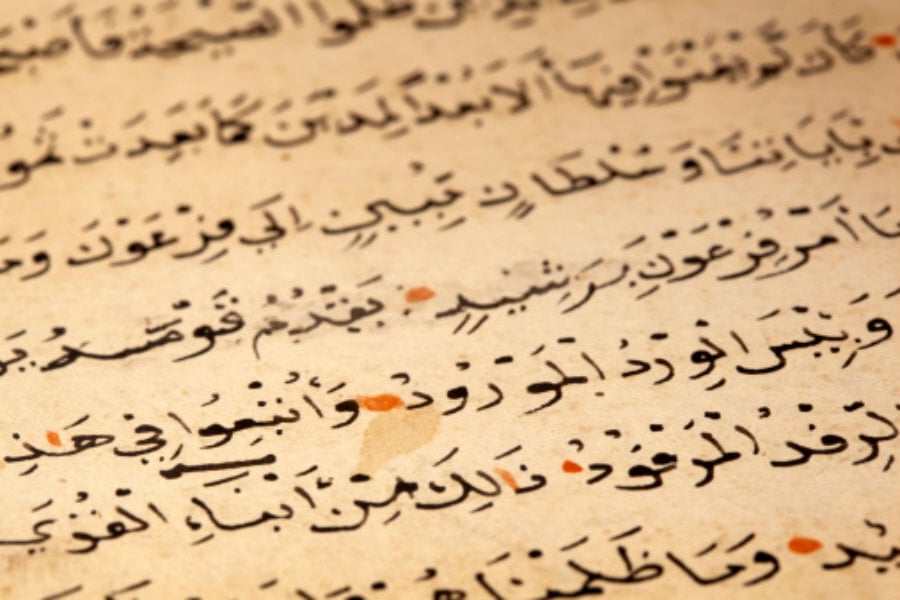 ظَلَمُوا الصَّيْحَةُ
كَأَنْ لَمْ يَغْنَوْا فِيهَا أَلَا بُعْدًا لِمَدْيَنَ كَمَا بَعِدَتْ
بِآيَاتِنَا وَسُلْطَانٍ مُبِينٍ إِلَى فِرْعَوْنَ
أَمْرُ فِرْعَوْنَ بِرَشِيدٍ يَقْدُمُ قَوْمَهُ
وَبِئْسَ الْوِرْدُ الْمَوْرُودُ وَأُتْبِعُوا فِي هَذِهِ
الرِّفْدُ الْمَرْفُودُ ذَلِكَ مِنْ أَنْبَاءِ الْقُرَى
وَمَا ظَلَمْنَا